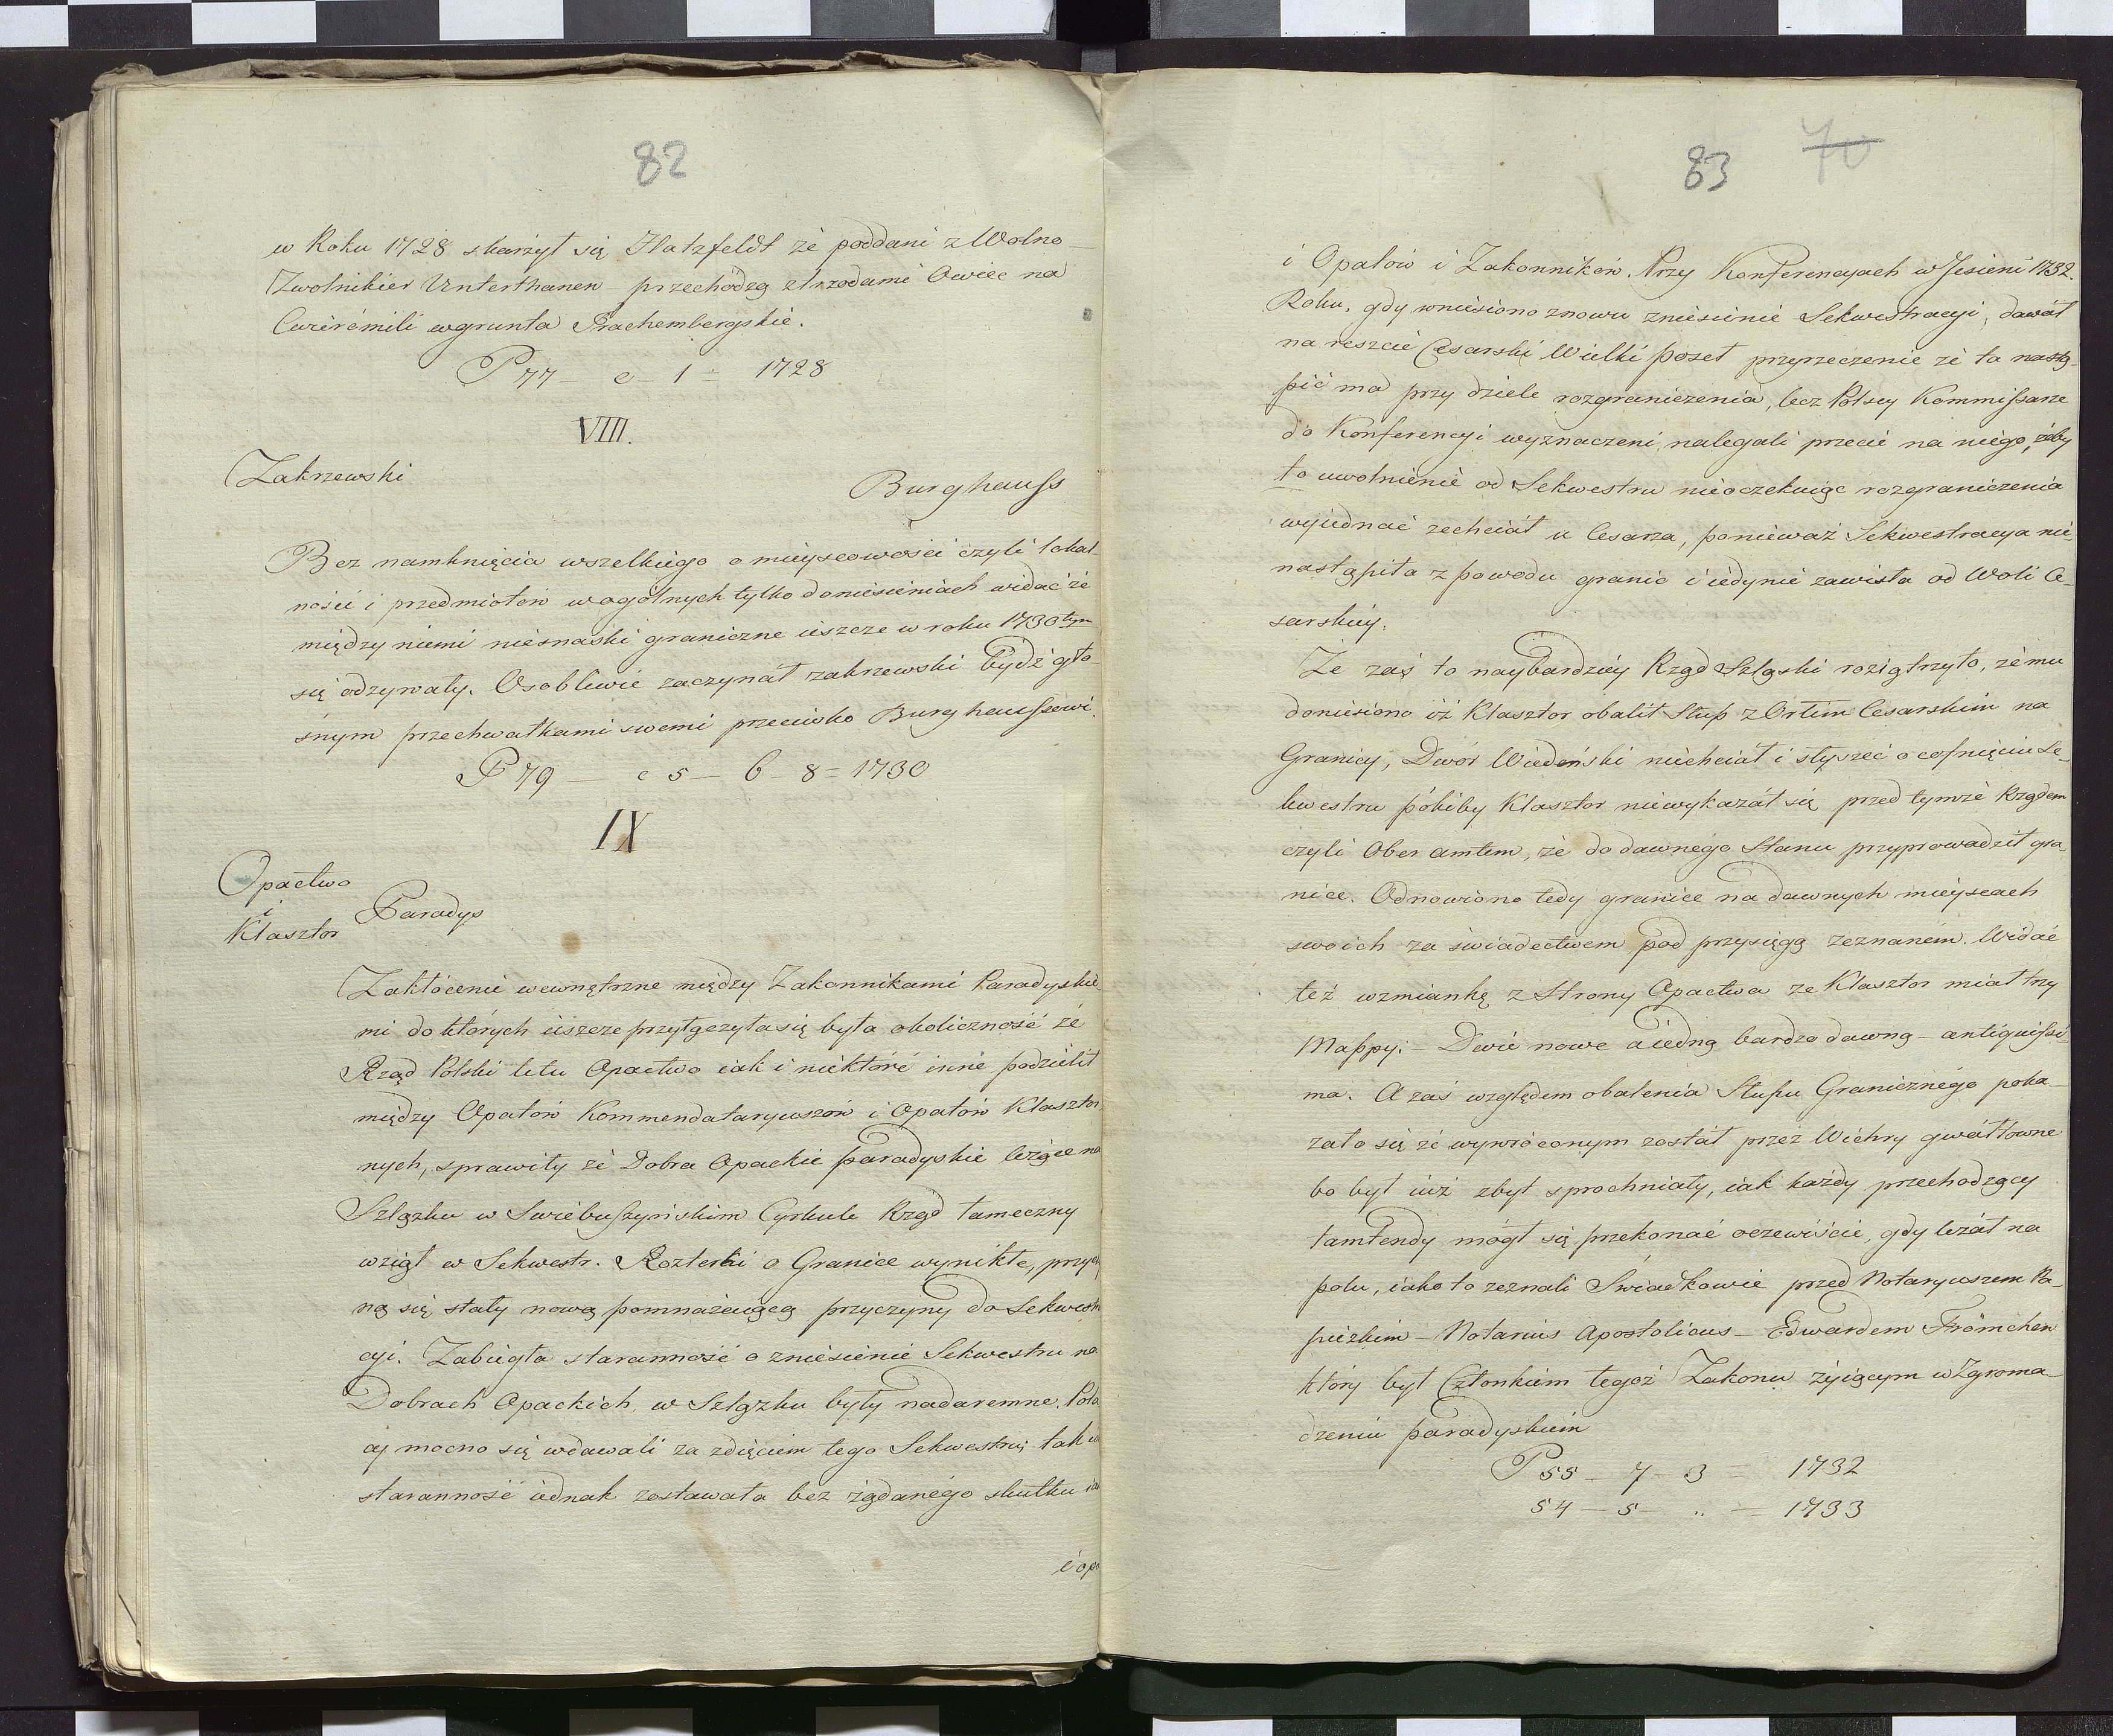 82
w Roku 1728 skarżył się Hatzfeldt że poddani z Wolno-
Zwolnikier Unterthanen - przechodzą z trzodami Owiec na
Ćwierćmili w grunta Prachembergskie.
P 77 - c - 1 = 1728
VIII.
Zakrzewski
Burghauss
Bez namknięcia wszelkiego o mieyscowości czyli lokal-
ności i przedmiotów w ogólnych tylko doniesieniach widać że
między niemi niesnaski graniczne ieszcze w roku 1730tym
się odzywały. Osobliwie zaczynał zakrzewski bydź gło-
śnym przechwałkami swemi przeciwko Burghaussowi.
P 79 - c 5 - 6 - 8 = 1730
IX
Opactwo
i
Klasztor
Paradys
Zakłócenie wewnętrzne między Zakonnikami Paradyskie
mi do których ieszcze przyłączyła się była okoliczność że
Rząd Polski letu Opactwo iak i niektóré inné podzielił
między Opatów Kommendataryuszów i Opatów Klasztor
nych, sprawiły że Dobra Opackie paradyskie leżące na
Szląsku w Swiebuszyńskim Cyrkule Rząd tameczny
wziął w Sekwestr. Rozterki o Granice wynikłe, przyczy
ną się stały nową pomnażaiącą przyczyny do Sekwestra
cyi. Zabiegła staranność o zniesienie Sekwestru na
Dobrach Opackich w Szląsku były nadaremne. Pola
cy mocno się wdawali za zdięciem tego Sekwestru; tak
staranność iednak zostawała bez żądanégo skutku
i opa
83 70
i Opatów i Zakonników. Przy Konferencyach w Jesieni 1732.
Roku, gdy wniesiono znowu zniesienie Sekwestracyi, dawał
na reszcie Cesarski Wielki poseł przyrzeczenie że ta nastą-
pić ma przy dziele rozgraniczenia, lecz Polscy Kommissarze
do Konferencyi wyznaczeni, nalegali przecie na niego, żeby
to uwolnienie od Sekwestru nieoczekuiąc rozgraniczenia
wyiednać zechciał u Cesarza, ponieważ Sekwestracya nie
nastąpiła z powodu granic i iedynie zawisła od Woli Ce-
sarskiey.
Że zaś to naybardziey Rząd Szląski roziątrzyło, że mu
doniesiono iż Klasztor obalił Słup z Orłem Cesarskim na
Granicy, Dwór Wiedeński niechciał i słyszeć o cofnięciu Se-
kwestru pókiby Klasztor niewykazał się przed tymże Rządem
czyli Ober amtem, że do dawnégo Stanu przyprowadził gra-
nice. Odnowiono tedy granice na dawnych mieyscach
swoich za świadectwem pod przysięgą zeznaném. Widać
też wzmiankę z Strony Opactwa że Klasztor miał trzy
Mappy: - Dwie nowe a iedną bardzo dawną - antiquissi
ma. A zaś względem obalenia Słupu Granicznégo poka-
zało się że wywróconym został przez Wichry gwałtowne
bo był iuż zbyt spróchniały, iak każdy przechodzący
tamtendy mógł się przekonać oczewiście, gdy leżał na
polu, iako to zeznali Świadkowie przed Notaryuszem Pa-
pieżkim - Notarius Apostolicus - Edwardem Frömchen
który był Członkiem tegoż Zakonu żyiącym w Zgroma-
dzeniu paradyskiém
P 55 - 7 - 3 = 1732
54 - 5 - .. = 1733